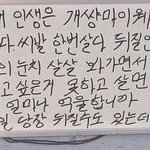 내 인생은 개쌍마이웨
다. 씨발 한번살다 뒤질인
의 눈치 살살 봐가면서
고 싶은거 못하고 살면
얼마나 억울합니까
일 당장 뒤질수도 있는데